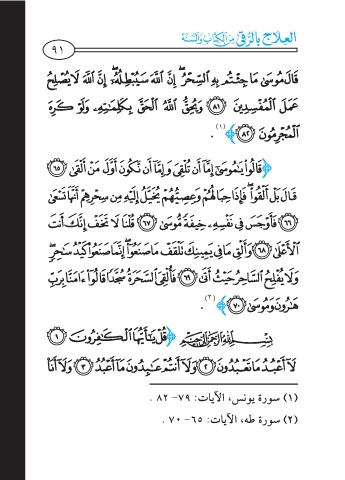 العلاج بالرقى من الكتاب والسنة
٩١
قَالَ مُوسَىٰ مَا جِئْتُم بِهِ السِّحْرُ ۖ إِنَّ اللَّهَ سَيُبْطِلُهُ ۖ إِنَّ اللَّهَ لَا يُصْلِحُ
عَمَلَ الْمُفْسِدِينَ (٨١) وَيُحِقُّ اللَّهُ الْحَقَّ بِكَلِمَاتِهِ وَلَوْ كَرِهَ
الْمُجْرِمُونَ (٨٢)﴾ (١) .
﴿قَالُوا يَا مُوسَىٰ إِمَّا أَن تُلْقِيَ وَإِمَّا أَن نَّكُونَ أَوَّلَ مَنْ أَلْقَىٰ (٦٥)
قَالَ بَلْ أَلْقُوا ۖ فَإِذَا حِبَالُهُمْ وَعِصِيُّهُمْ يُخَيَّلُ إِلَيْهِ مِن سِحْرِهِمْ أَنَّهَا تَسْعَىٰ
(٦٦) فَأَوْجَسَ فِي نَفْسِهِ خِيفَةً مُّوسَىٰ (٦٧) قُلْنَا لَا تَخَفْ إِنَّكَ أَنتَ
الْأَعْلَىٰ (٦٨) وَأَلْقِ مَا فِي يَمِينِكَ تَلْقَفْ مَا صَنَعُوا ۖ إِنَّمَا صَنَعُوا كَيْدُ سَاحِرٍ ۖ
وَلَا يُفْلِحُ السَّاحِرُ حَيْثُ أَتَىٰ (٦٩) فَأُلْقِيَ السَّحَرَةُ سُجَّدًا قَالُوا آمَنَّا بِرَبِّ
هَارُونَ وَمُوسَىٰ (٧٠)﴾ (٢) .
بِسْمِ اللَّهِ الرَّحْمَٰنِ الرَّحِيمِ ﴿قُلْ يَا أَيُّهَا الْكَافِرُونَ (١)
لَا أَعْبُدُ مَا تَعْبُدُونَ (٢) وَلَا أَنتُمْ عَابِدُونَ مَا أَعْبُدُ (٣) وَلَا أَنَا
(١) سورة يونس، الآيات: ٧٩- ٨٢ .
(٢) سورة طه، الآيات: ٦٥- ٧٠ .